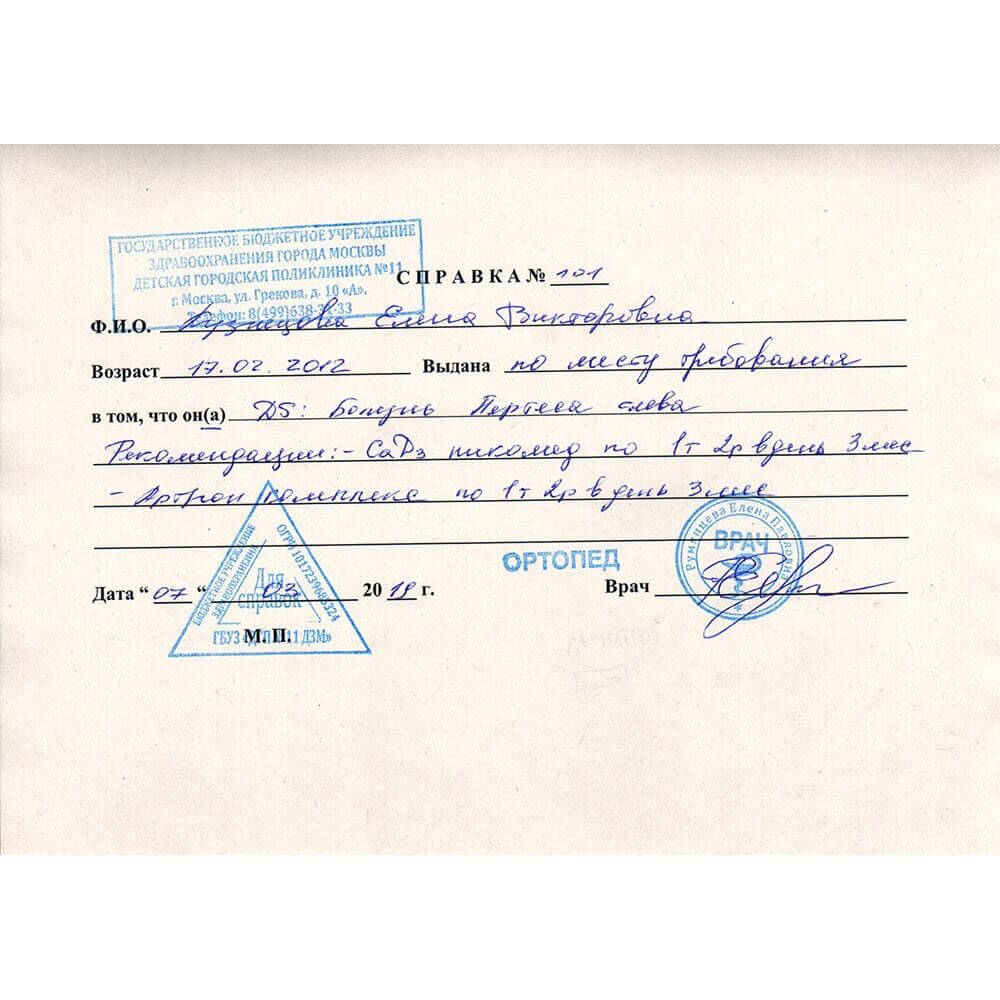 ГОСУДАРСТВЕННОЕ БЮДЖЕТНОЕ УЧРЕЖДЕНИЕ
ЗДРАВООХРАНЕНИЯ ГОРОДА МОСКВЫ
ДЕТСКАЯ ГОРОДСКАЯ ПОЛИКЛИНИКА №11
г. Москва, ул. Грекова, д. 10 «А».
Телефон: 8(499)638-31-33
СПРАВКА № 101
Ф.И.О. Кузнецова Елена Викторовна
Возраст 17.02.2012 Выдана по месту требования
в том, что он(а) DS: Болезнь Пертеса слева
Рекомендации: - СаD3 никомед по 1т 2р в день 3 мес
- Артрон комплекс по 1т 2р в день 3 мес
БЮДЖЕТНОЕ УЧРЕЖДЕНИЕ
ЗДРАВООХРАНЕНИЯ
ОГРН 1017239685324
Для
справок
ГБУЗ 11 ДЗМ»
ОРТОПЕД
Румянцева Елена Павловна
ВРАЧ
Дата “ 07 “ 03 20 19 г. Врач
М. П.